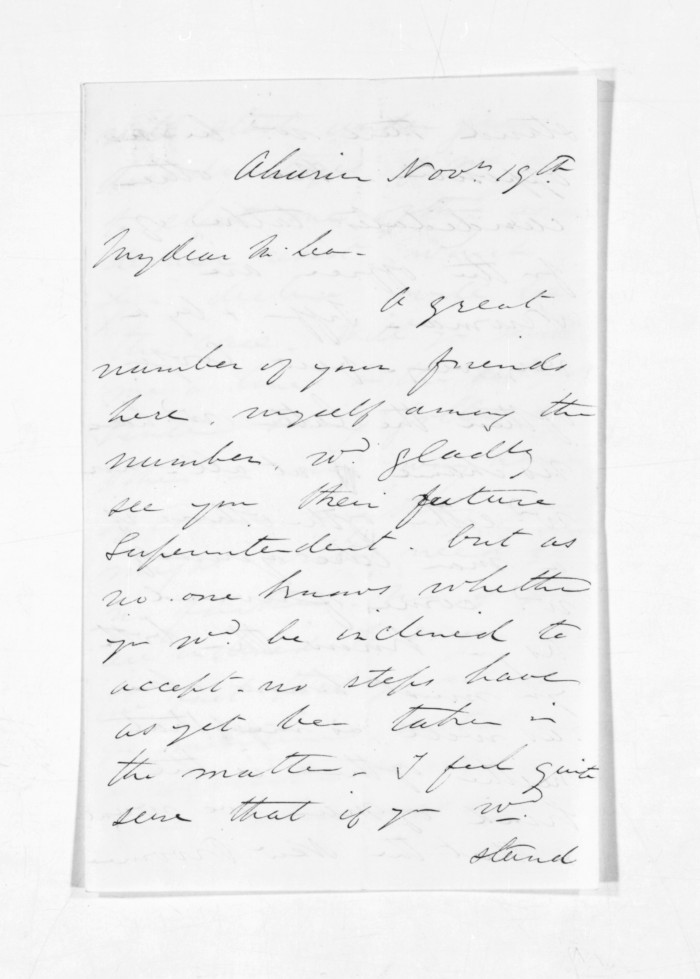 Ahuriri Novr 19th
My dear McLean
A great
number of your friends
here, myself among the
number, wd gladly
see you their future
Superintendent. but as
no one knows whether
yr wd be inclined to
accept. no steps have
as yet been taken in
the matter - I feel quite
sure that if yr wd
stand